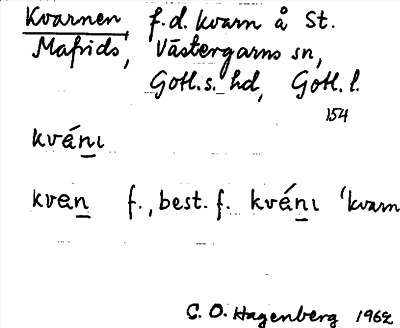 Kvarnen f.d. kvarn å St.
Mafrids, Västergarns sn,
Gotl.s. hd, Gotl. l.
154
kvánı
kvan f., best. f. kvánı 'kvarn
C. O. Hagenberg 1962